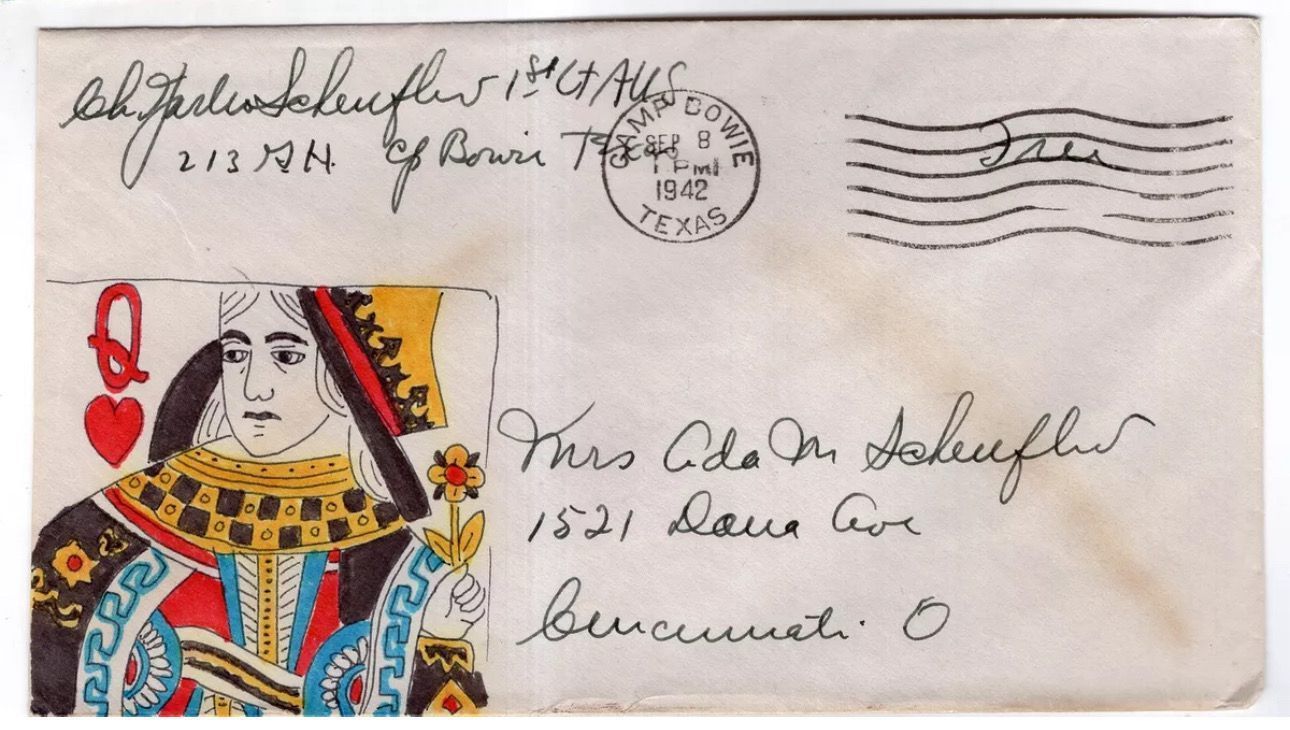 Ch. Scheufler 1st Lt AUS
213 G H. Cp Bowie Texas
CAMP BOWIE
SEP 8
1 PM
1942
TEXAS
Free
Q
Mrs Ada M Scheufler
1521 Dana Ave
Cincinnati. O